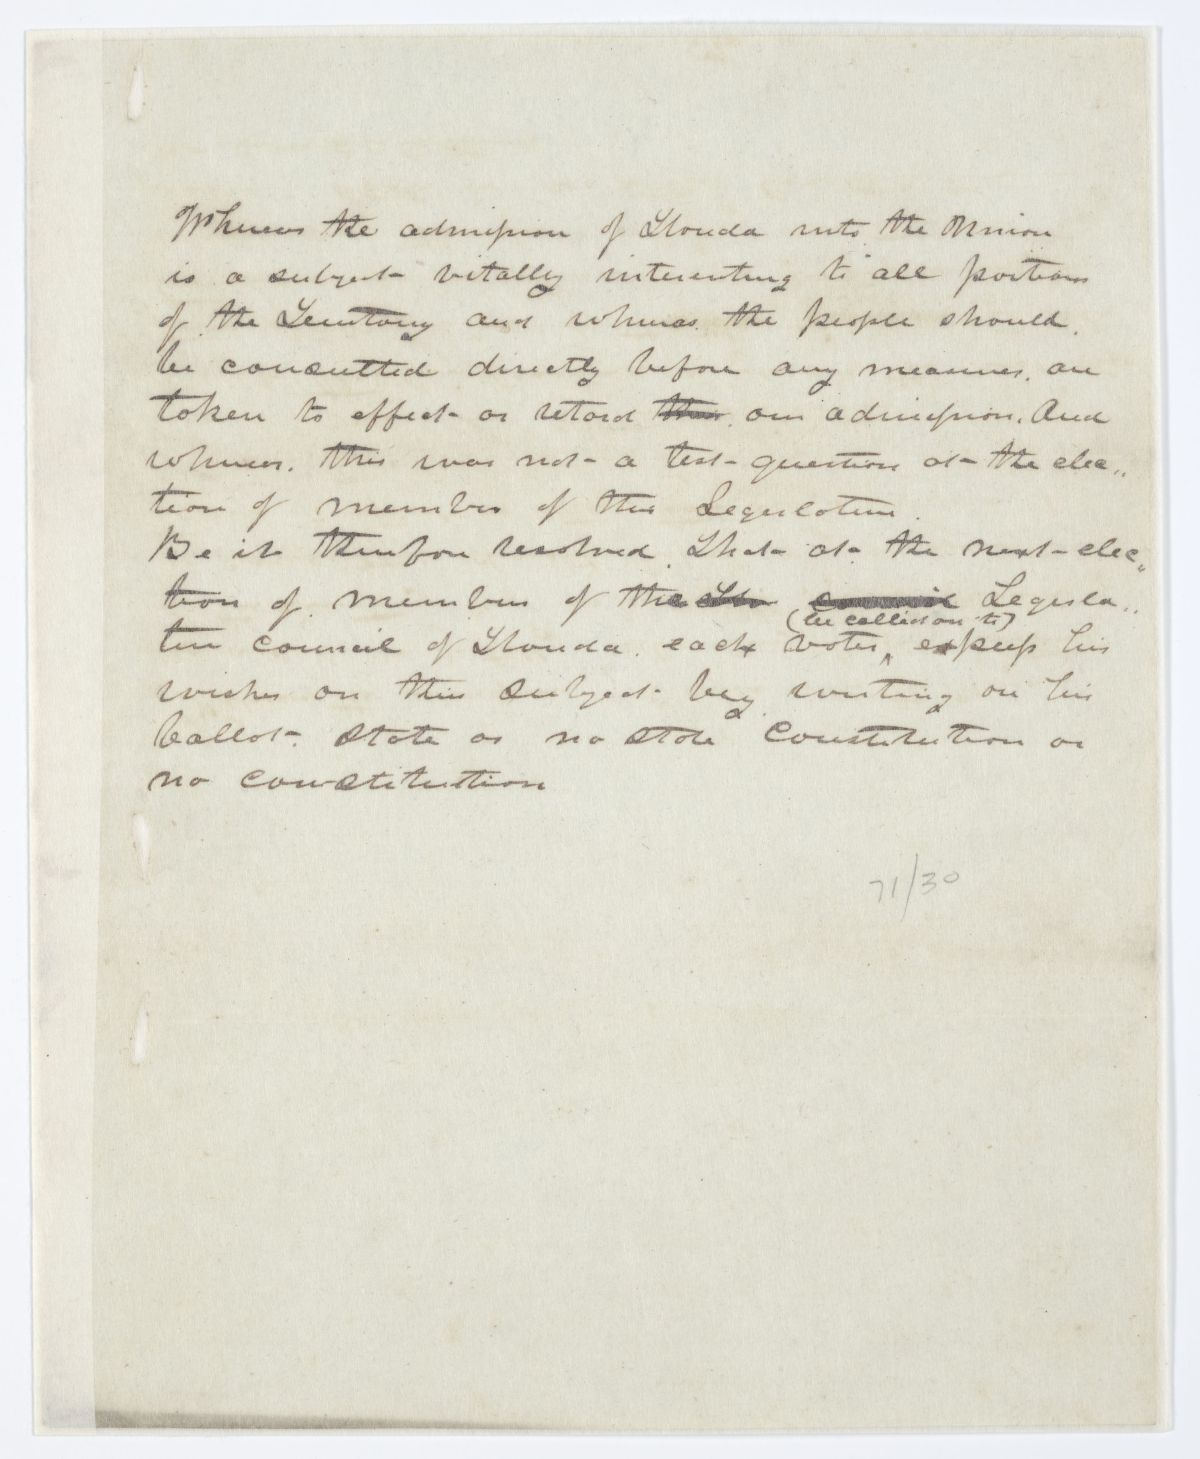 Whereas the admission of Florida into the Union
is a subject vitally interesting to all portions
of the Territory and whereas the people should
be consulted directly before any measures are
taken to effect or retard our admission. And
whereas this was not a test question at the elec,,
tion of member of the Legislature.
Be it therefore resolved That at the next elec,,
tion of members of the council Legisla,,
(be called on to)
tive council of Florida. each voter ^ express his
wishes on this subject by writing on his
ballot. State or no State Constitution or
no constitution
71/30